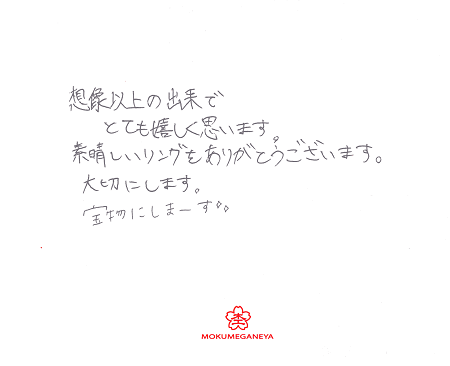 想像以上の出来で
とても嬉しく思います。
素晴しいリングをありがとうございます。
大切にします。
宝物にしまーす。。
MOKUMEGANEYA